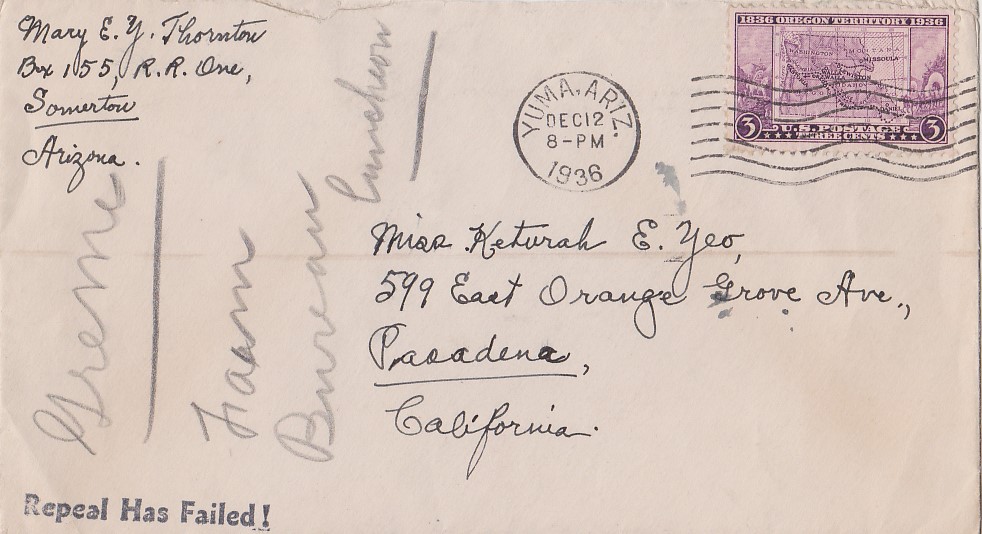 Mary E. Y. Thornton
Box 155, R.R. One,
Somerton
Arizona.
Greene
Farm
Bureau
Luncheon
YUMA, ARIZ.
DEC 12
8-PM
1936
1836 OREGON TERRITORY 1936
WASHINGTON
MONTANA
MISSOULA
IDAHO
3 U.S. POSTAGE 3
THREE CENTS
Miss Keturah E. Yeo,
599 East Orange Grove Ave.,
Pasadena,
California.
Repeal Has Failed!